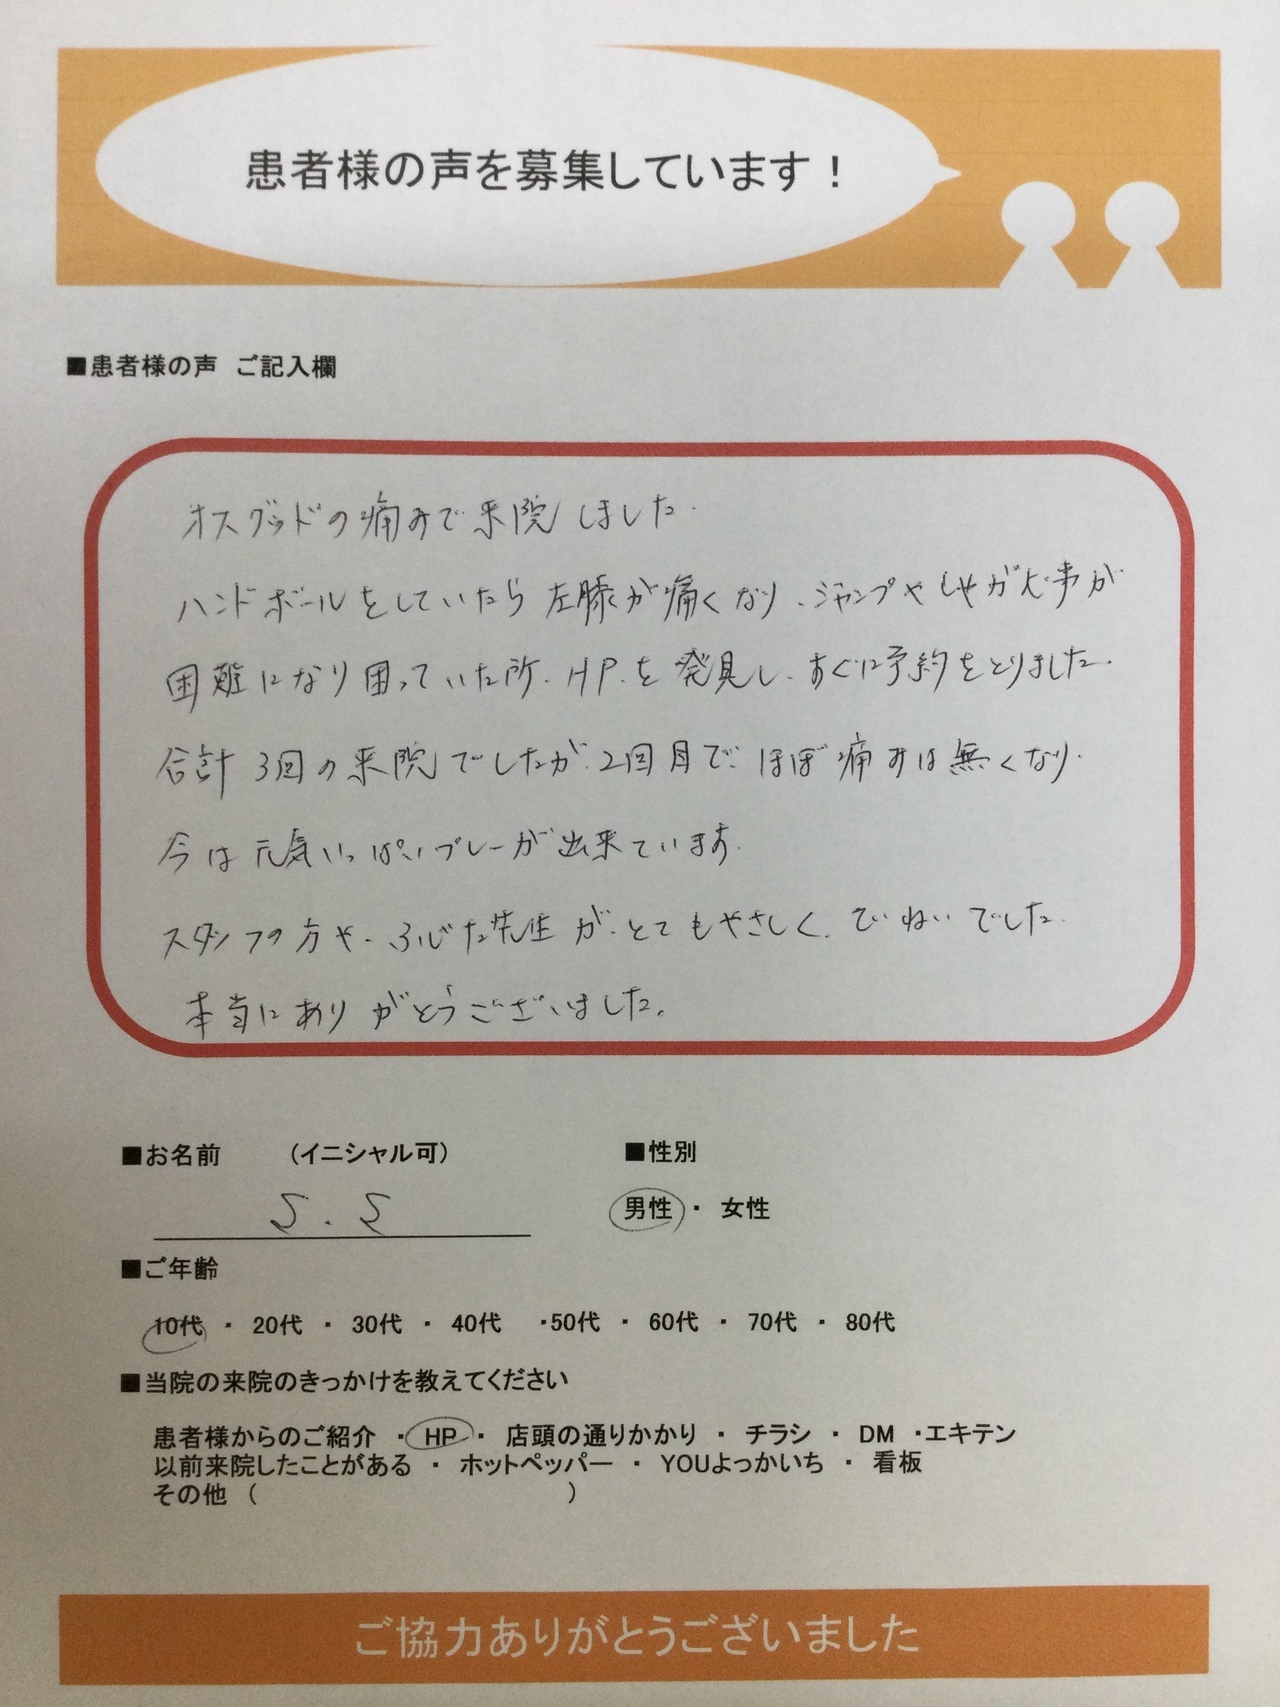 患者様の声を募集しています！
■患者様の声　ご記入欄
オスグッドの痛みで来院しました.
ハンドボールをしていたら左膝が痛くなり、ジャンプやしゃがむ事が
困難になり困っていた所、HP.を発見し、すぐに予約をとりました.
合計3回の来院でしたが、2回目で、ほぼ痛みは無くなり、
今は元気いっぱいプレーが出来ています.
スタッフの方や、ふじた先生が、とてもやさしく、ていねいでした.
本当にありがとうございました。
■お名前　（イニシャル可）　■性別
S.S　男性・女性
■ご年齢
10代・20代・30代・40代・50代・60代・70代・80代
■当院の来院のきっかけを教えてください
患者様からのご紹介・HP・店頭の通りかかり・チラシ・DM・エキテン
以前来院したことがある・ホットペッパー・YOUよっかいち・看板
その他（　　　）
ご協力ありがとうございました